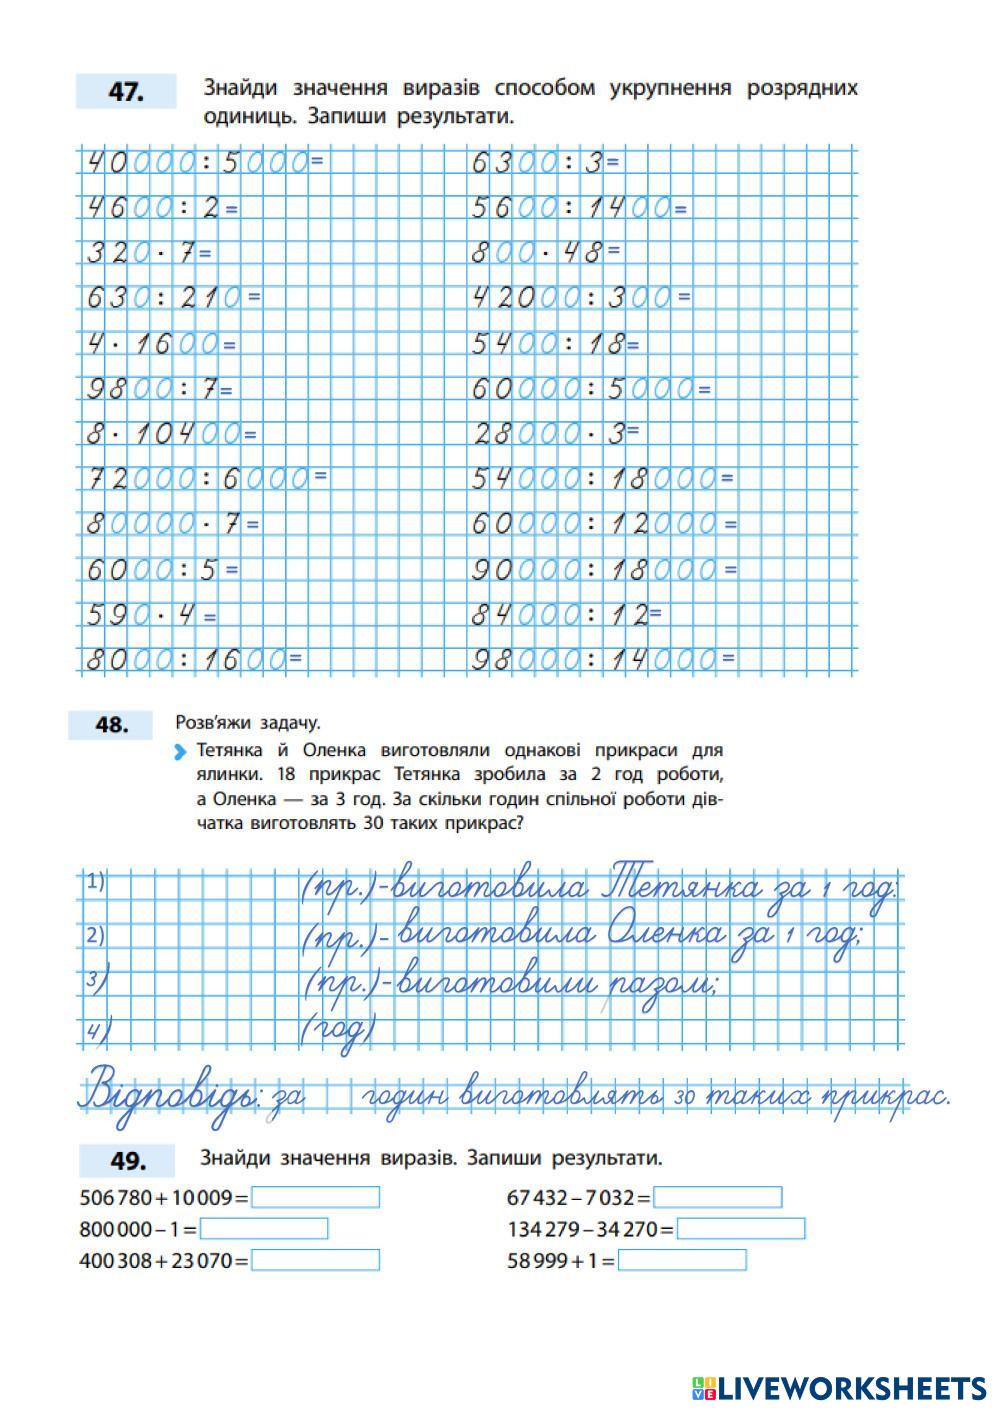 47. Знайди значення виразів способом укрупнення розрядних
одиниць. Запиши результати.
40000 : 5000 = 6300 : 3 =
4600 : 2 = 5600 : 1400 =
320 · 7 = 800 · 48 =
630 : 210 = 42000 : 300 =
4 · 1600 = 5400 : 18 =
9800 : 7 = 60000 : 5000 =
8 · 10400 = 28000 · 3 =
72000 : 6000 = 54000 : 18000 =
80000 · 7 = 60000 : 12000 =
6000 : 5 = 90000 : 18000 =
590 · 4 = 84000 : 12 =
8000 : 1600 = 98000 : 14000 =
48. Розв’яжи задачу.
Тетянка й Оленка виготовляли однакові прикраси для
ялинки. 18 прикрас Тетянка зробила за 2 год роботи,
а Оленка — за 3 год. За скільки годин спільної роботи дів-
чатка виготовлять 30 таких прикрас?
1) (пр.)-виготовила Тетянка за 1 год:
2) (пр.)-виготовила Оленка за 1 год;
3) (пр.)-виготовили разом;
4) (год)
Відповідь: за годин виготовлять 30 таких прикрас.
49. Знайди значення виразів. Запиши результати.
506 780 + 10 009 = 67 432 – 7 032 =
800 000 – 1 = 134 279 – 34 270 =
400 308 + 23 070 = 58 999 + 1 =
LIVE LIVEWORKSHEETS